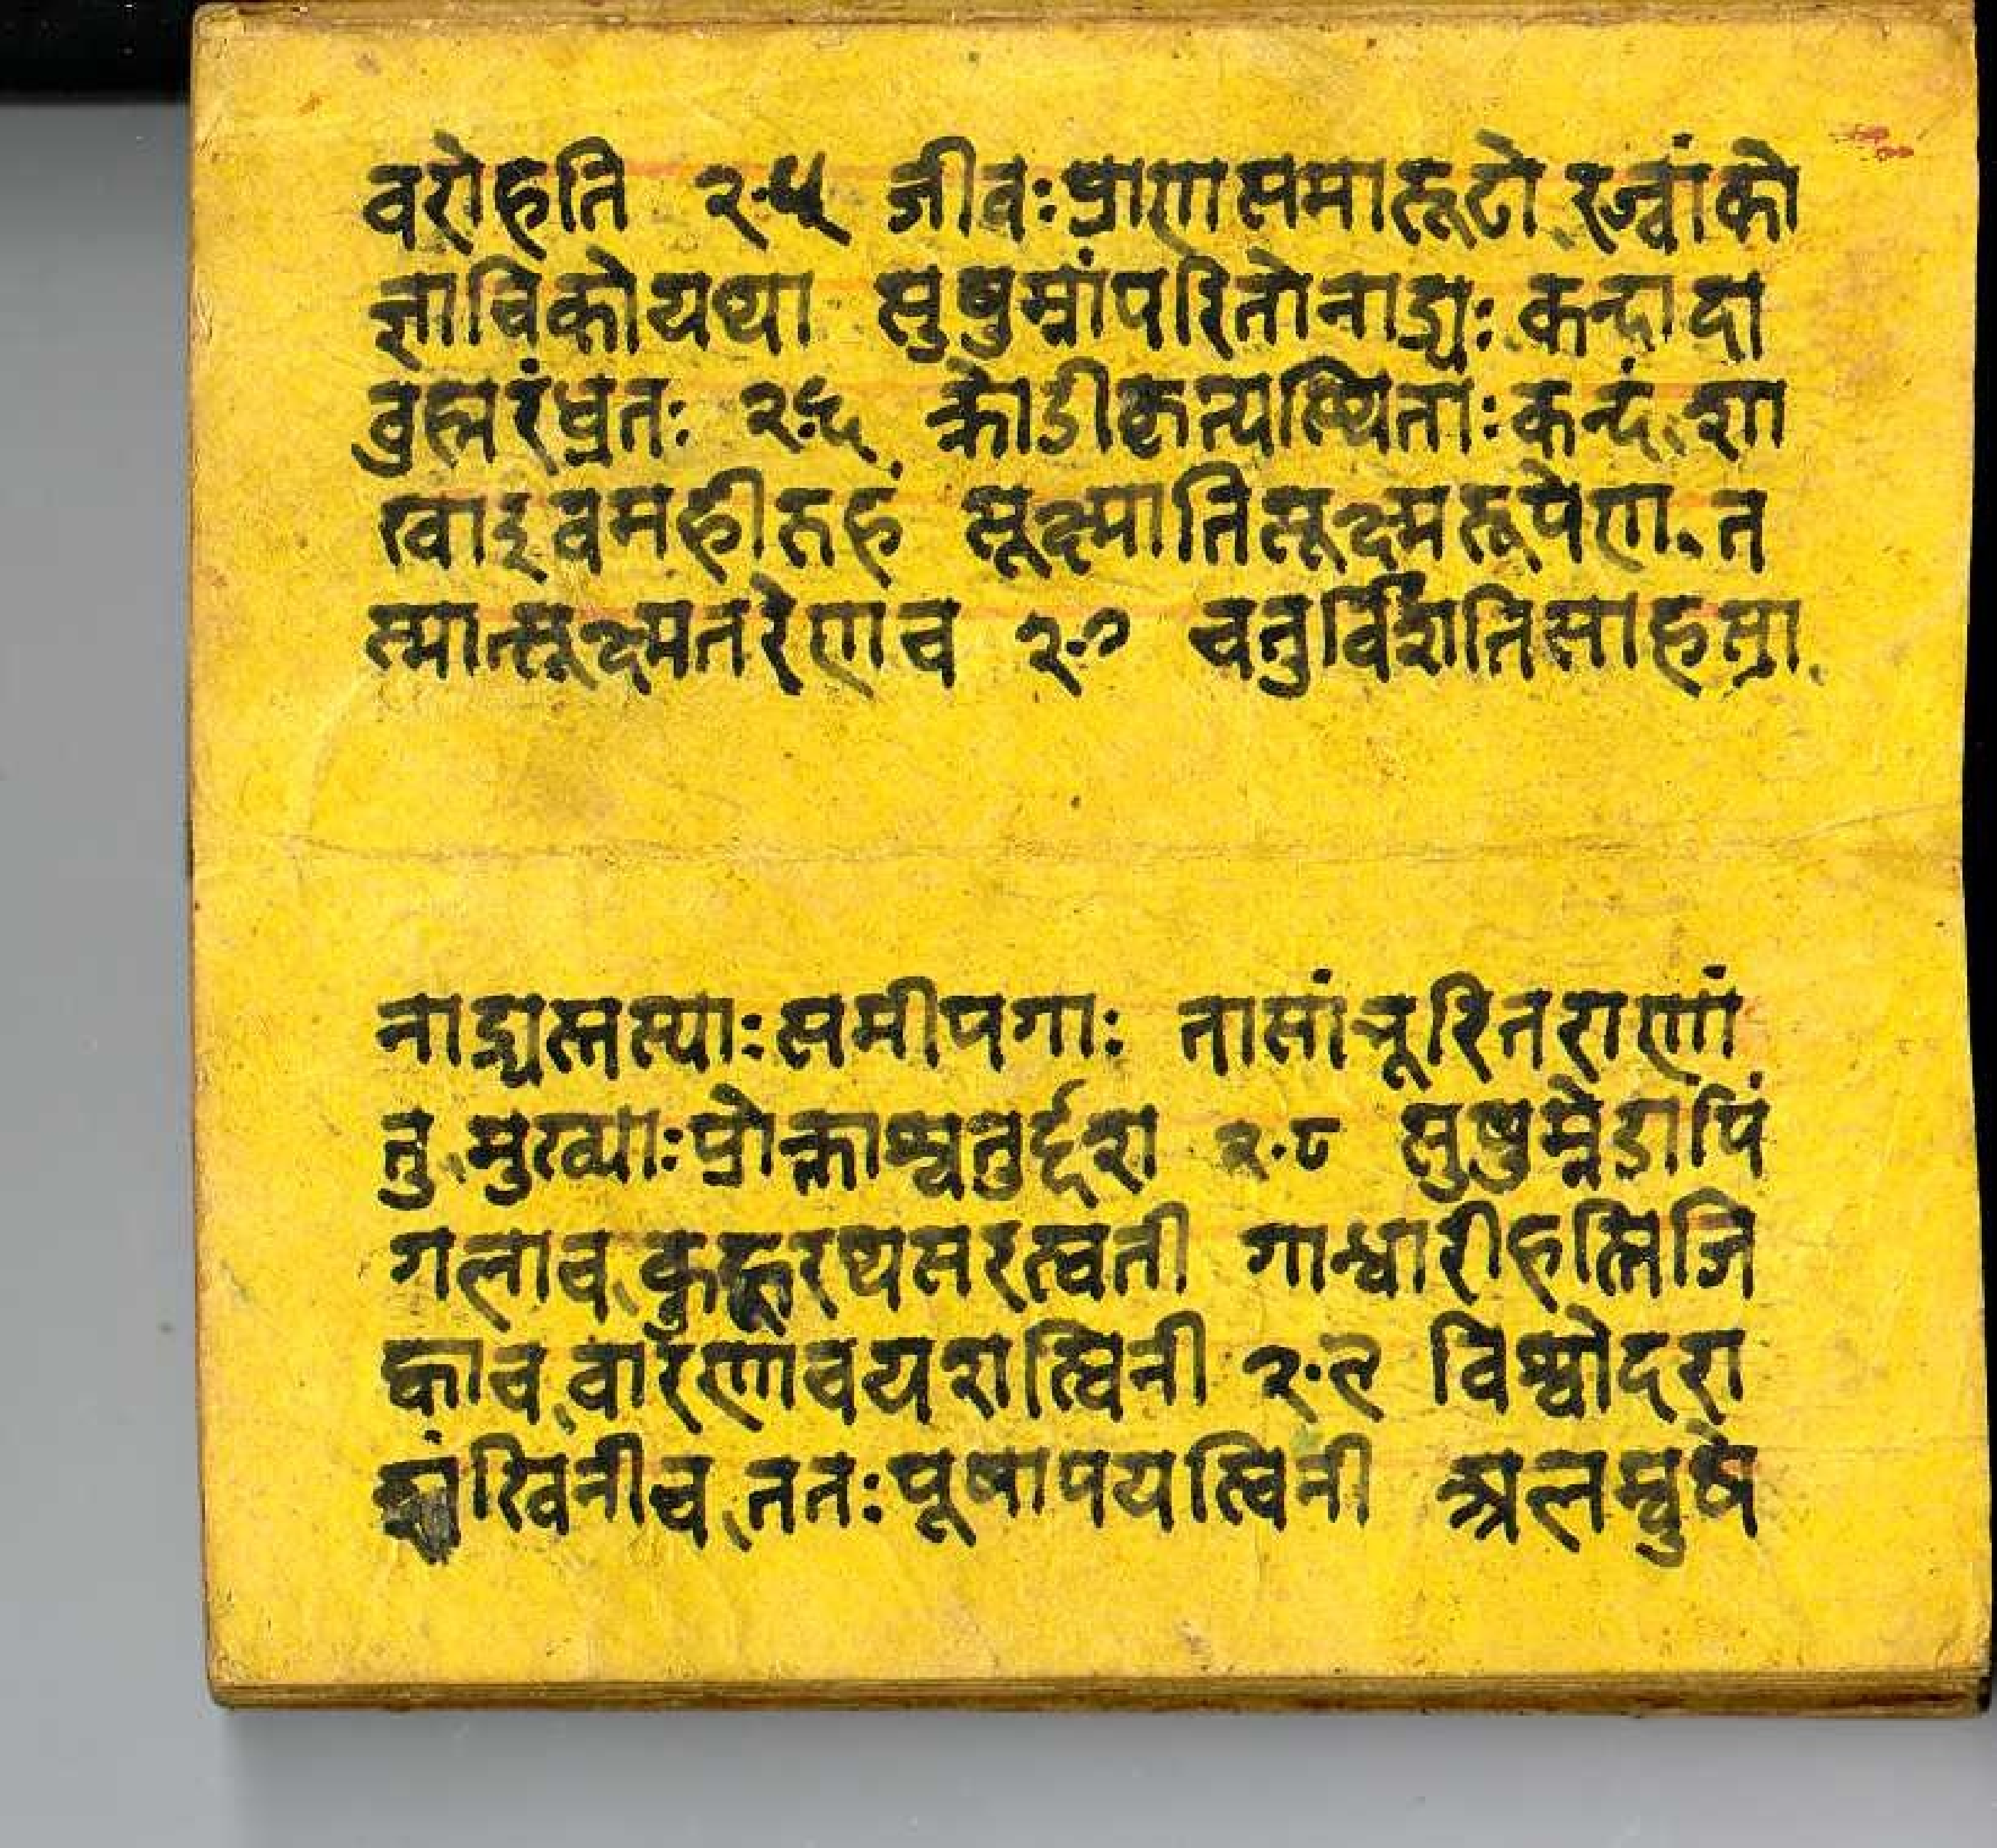 वरोहति २५ जीवःप्राणसमारूढो रज्वांको
ज्ञाविकोयथा सुषुम्नांपरितोनाड्यः कन्दादा
ब्रुह्मरंध्रतः २६ क्रोडीकृत्यस्थिताःकन्दं शा
खाइवमहीरुहं सूक्ष्मातिसूक्ष्मरूपेण त
त्मात्सूक्ष्मतरेणच २७ चतुर्विंशतिसाहस्रा
नाड्यस्तस्याःसमीपगाः तासांचूरितराणां
तु मुख्याःप्रोक्ताश्चतुर्द्दश २८ सुषुम्नेडापिं
गलाच कुहूरथसरस्वती गान्धारीहस्तिजि
ह्वाच वारणांचयशस्विनी २९ विश्वोदरा
शंखिनीच ततःपूषापयस्विनी अलम्बुषे